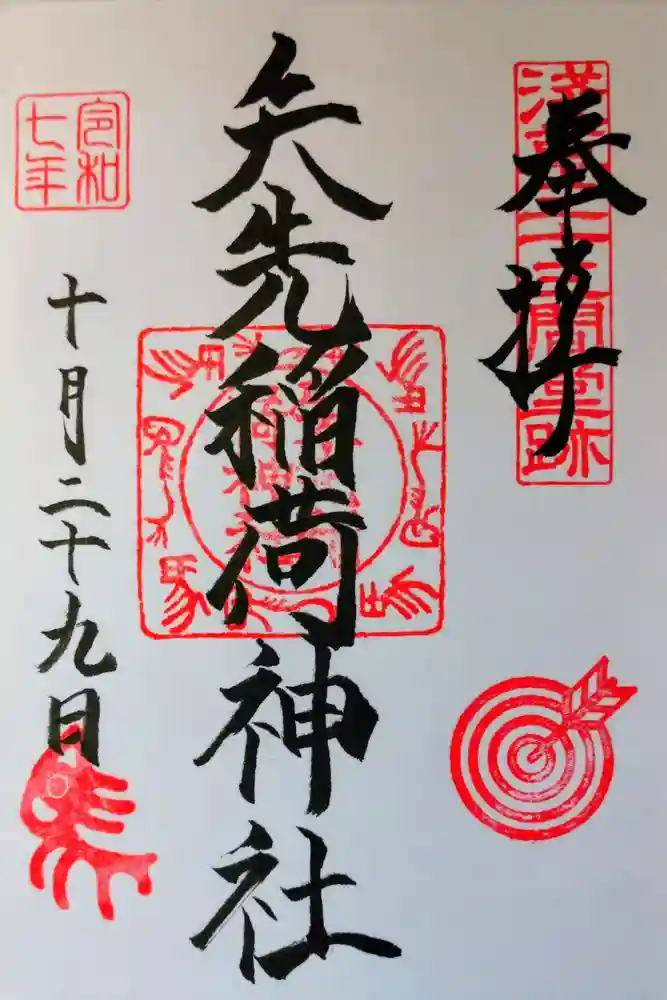 奉拝
浅草三十三間堂跡
矢先稲荷神社
令和
七年
十月二十九日